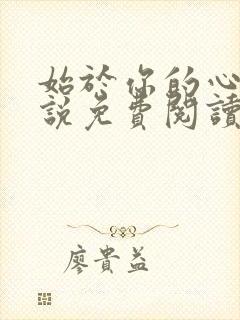 始於你的心
說免費閱讀
廖貴益